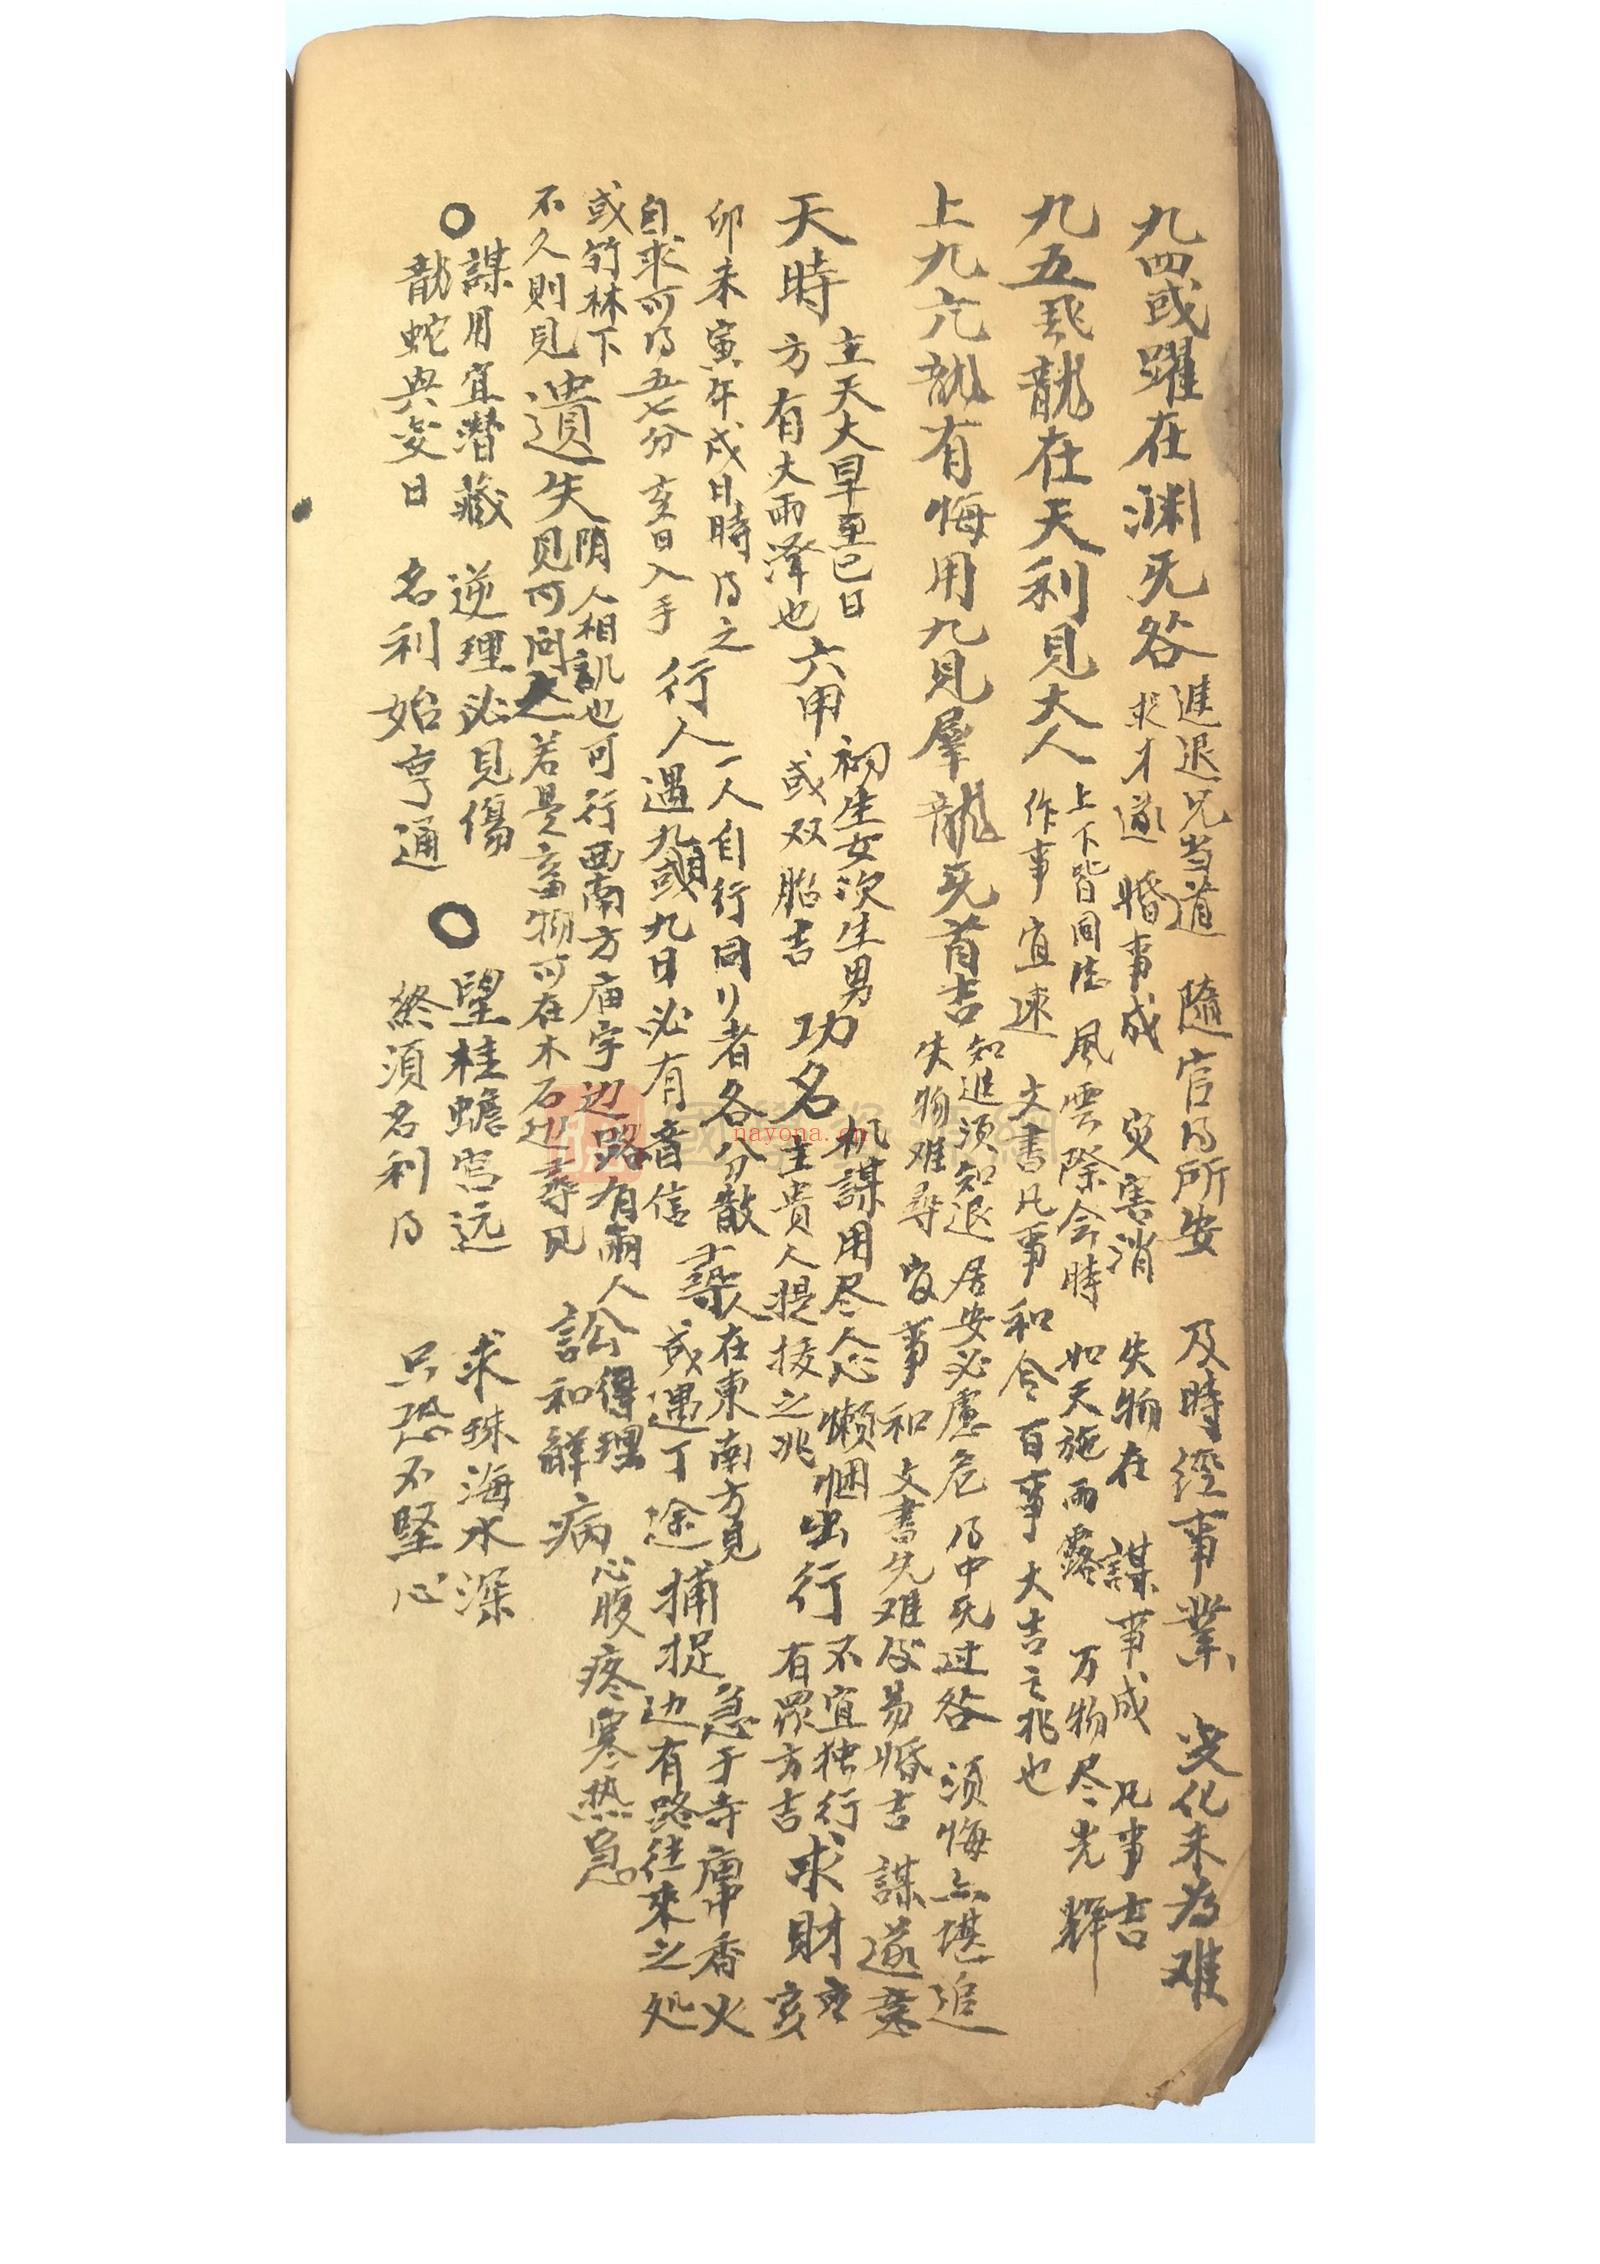 九四或躍在渊旡咎
進退兄当道 隨官所安 及時經事業 变化未為难
求才遂 婚事成 灾害消 失物在 謀事成 凡事吉
九五飛龍在天利見大人
上下皆同 風雲際会時 如天施雨露 万物尽光輝
作事宜速 文書凡事和合百事大吉之兆也
上九亢龍有悔用九見羣龍旡首吉
知進須知退 居安必慮危 中旡过咎 須悔亦堪追
失物难尋 官事和 文書先难後易婚吉 謀遂意
天時
主天大旱至巳日
方有大雨澤也
六甲
初生女次生男
或双胎吉
功名
机謀用尽人心懒困
主貴人提拔之兆
出行
不宜独行
有眾方吉
求財
亥
卯未寅午戌日時得之
自求可得五七分亥日入手
行人
一人自行同行者各分散
遇九或九日必有音信
尋人
在東南方見
或遇丁途
捕捉
急于寺庙中香火
边有路往來之处
或竹林下
不久則見
遺失
陰人相訊也可行西南方庙宇边路有兩人
見可问之若是畜物可在木石边尋見
訟
得理
和解
病
心腹疼寒热急
○謀用宜潛藏 逆理必見傷
龍蛇興变日 名利始亨通
○望桂蟾宫远 求珠海水深
終須名利得 只恐不堅心
國學
nayona.cn